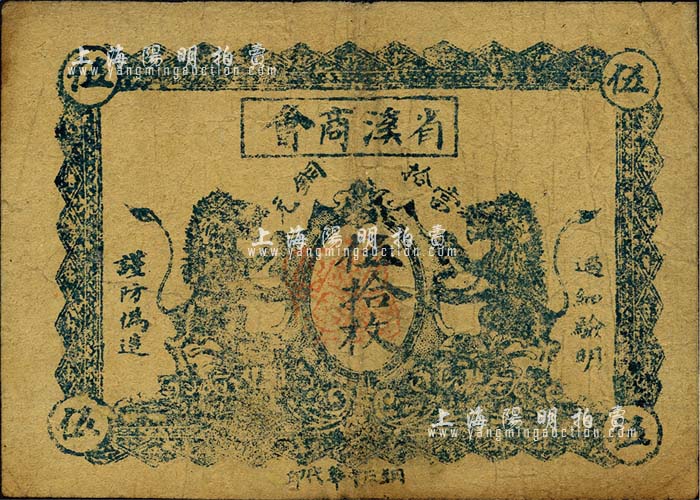 伍 伍
省溪商會
當省銅元
伍拾枚
過細驗明
謹防偽造
伍 伍
上海陽明拍賣
www.yangmingauction.com
上海陽明拍賣
www.yangmingauction.com
上海陽明拍賣
www.yangmingauction.com